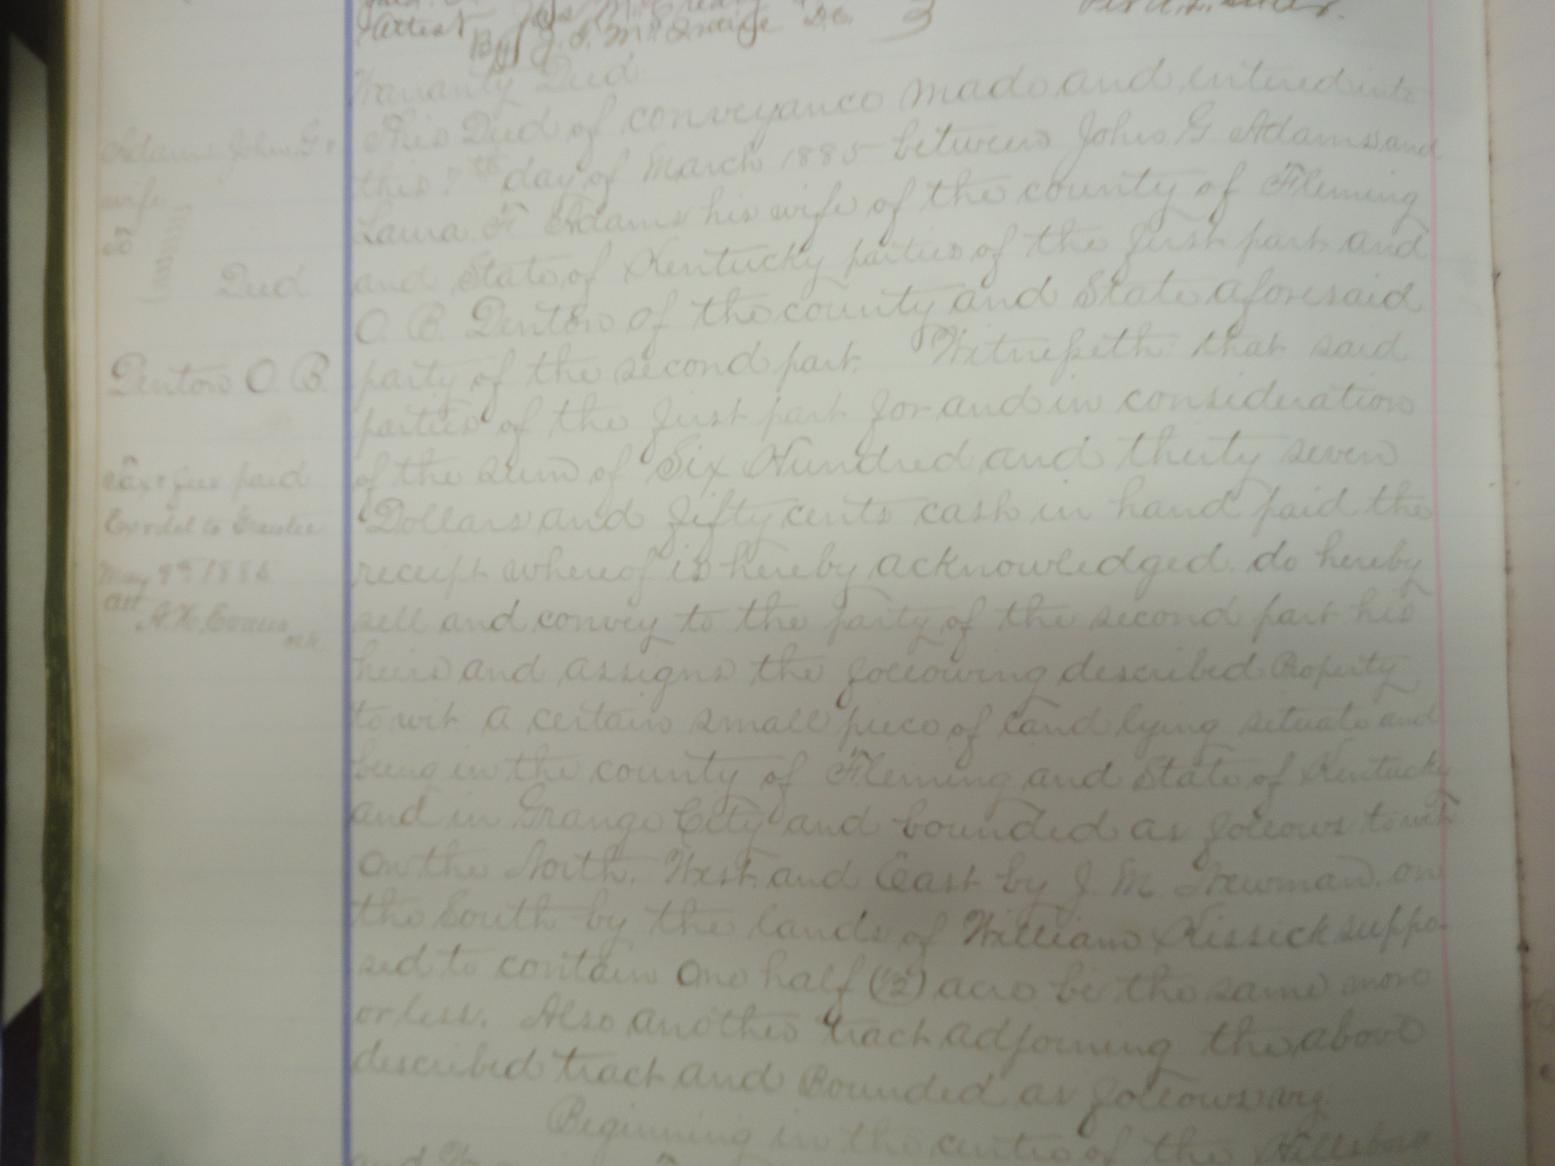 Attest
By J. S. McQ D.C.
Warranty Deed
This Deed of conveyance made and entered into
this 7th day of March 1885 between John G Adams and
Laura F Adams his wife of the county of Fleming
and State of Kentucky parties of the first part and
O. B. Denton of the county and State aforesaid
party of the second part. Witnesseth that said
parties of the first part for and in consideration
of the sum of Six Hundred and thirty seven
Dollars and fifty cents cash in hand paid the
receipt whereof is hereby acknowledged do hereby
sell and convey to the party of the second part his
heirs and assigns the following described Property
to wit a certain small piece of land lying situate and
being in the county of Fleming and State of Kentucky
and in Grange City and bounded as follows to wit
on the North, West and East by J. M. on
the South by the lands of William Kissick suppo-
sed to contain one half (1/2) acre be the same more
or less. Also another tract adjoining the above
described tract and Bounded as follows viz
Beginning in the centre of the Hillsboro
and
Adams John G &
wife
to
Deed
Denton O. B.
Tax & fees paid
to Grantee
May 1886
Att
A. H. Evans